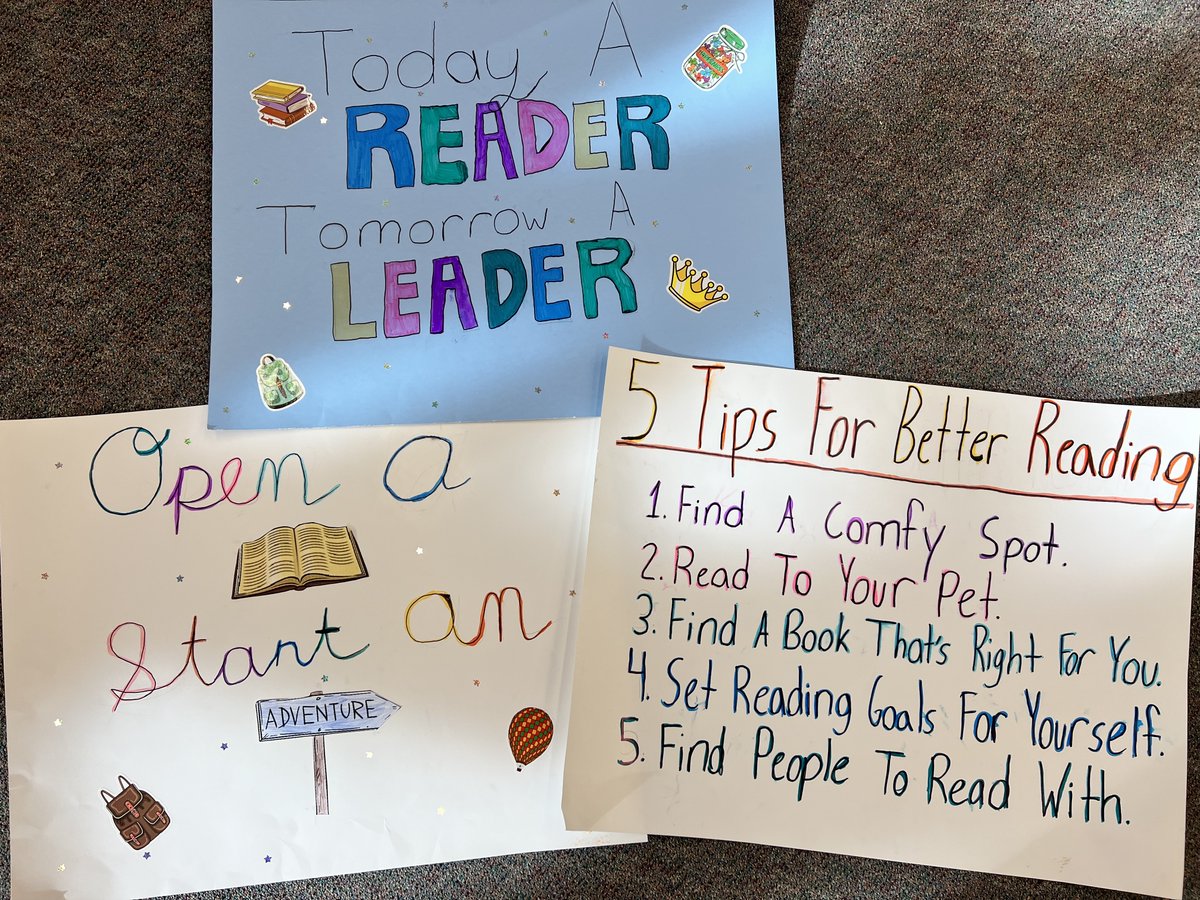 Today A
READER
Tomorrow A
LEADER
Open a
Start an
ADVENTURE
5 Tips For Better Reading
1. Find A Comfy Spot.
2. Read To Your Pet.
3. Find A Book That's Right For You.
4. Set Reading Goals For Yourself.
5. Find People To Read With.